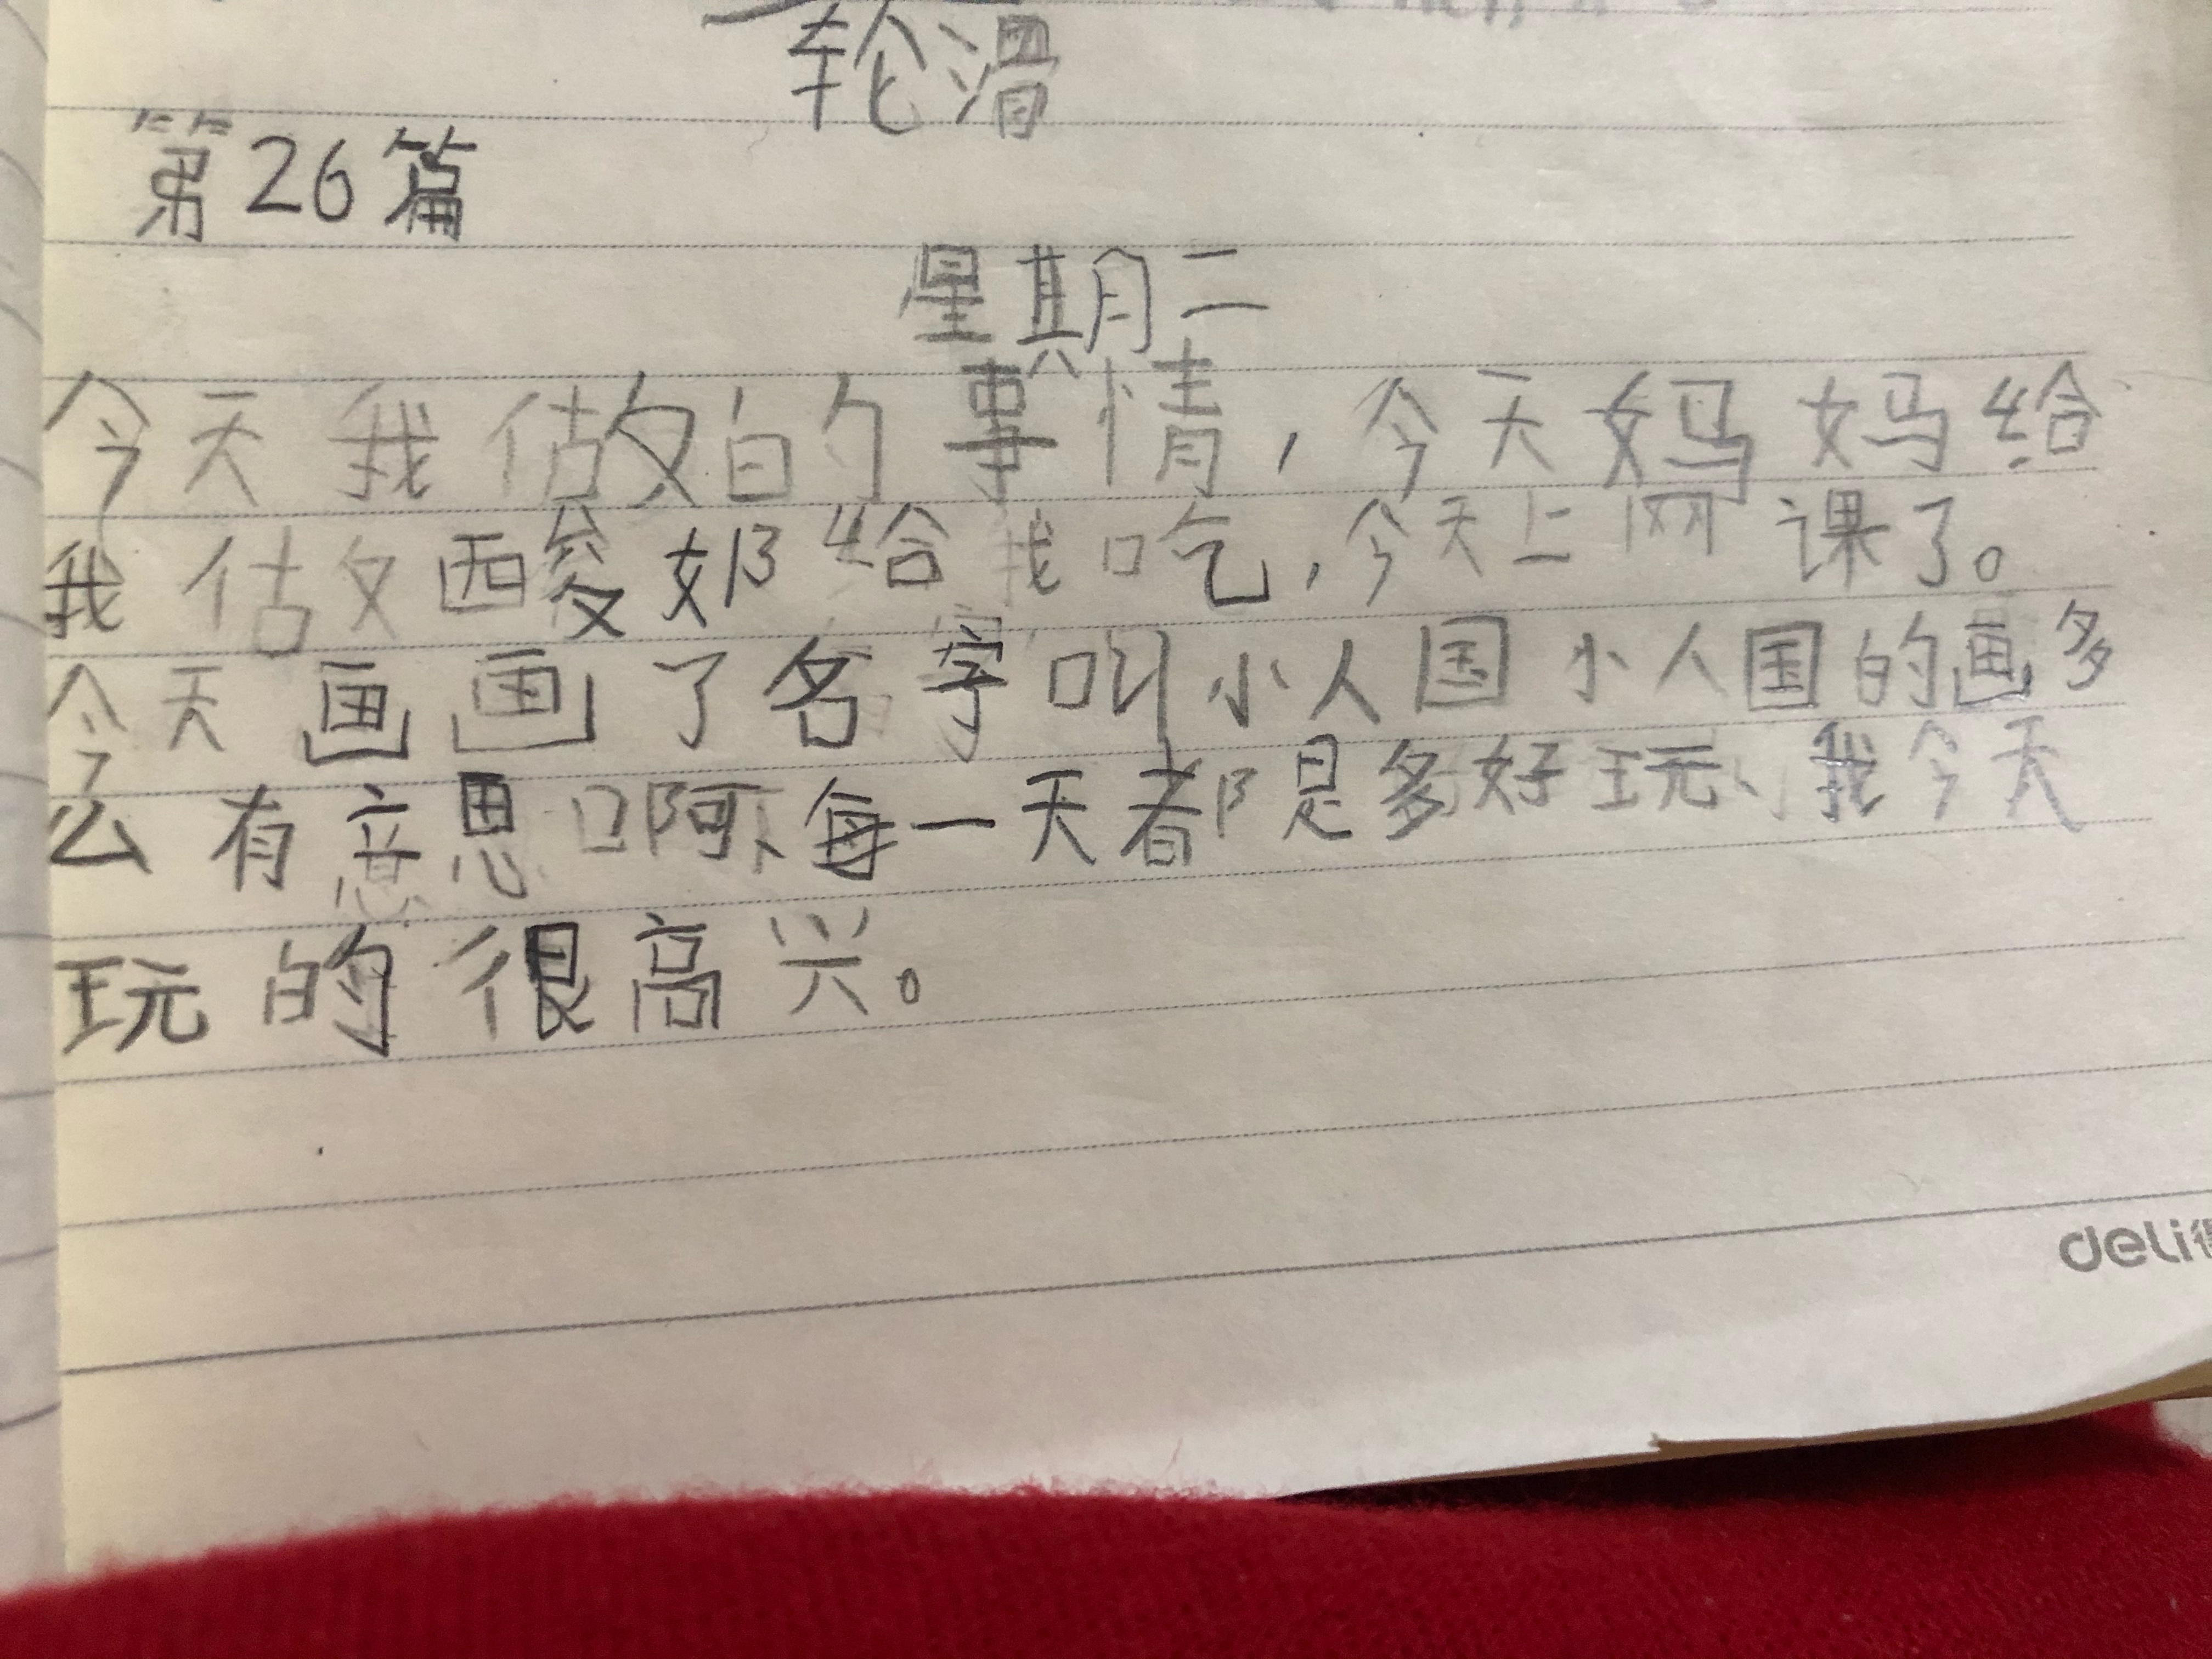 轮滑
第26篇
星期二
今天我做的事情，今天妈妈给
我做酸奶给我吃，今天上网课了。
今天画画了名字叫小人国小人国的画多
么有意思啊、每一天都是多好玩、我今天
玩的很高兴。
deli